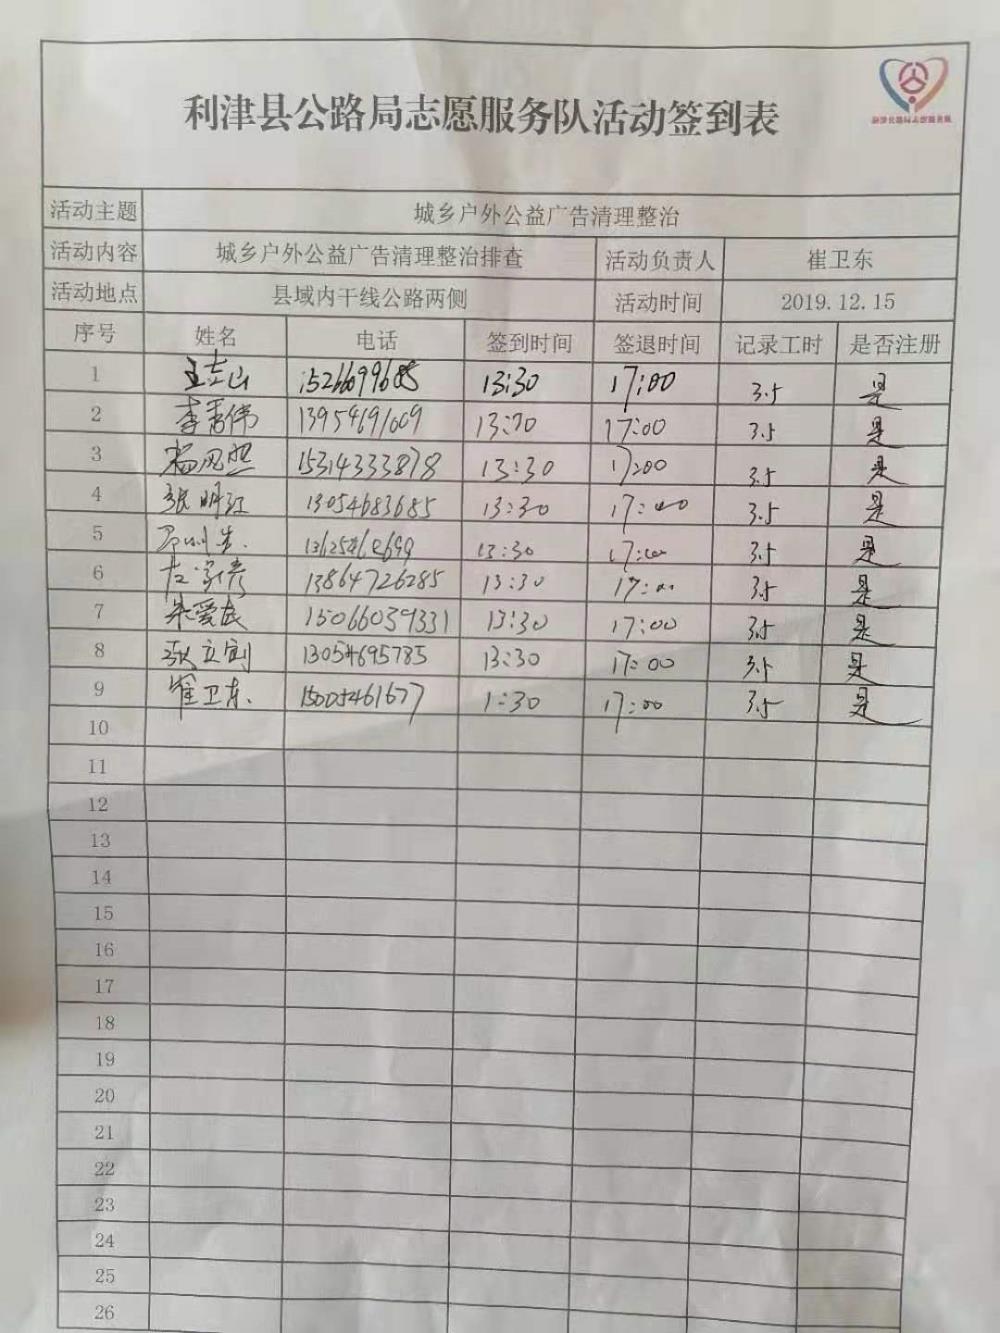 利津县公路局志愿服务队活动签到表
活动主题 城乡户外公益广告清理整治
活动内容 城乡户外公益广告清理整治排查 活动负责人 崔卫东
活动地点 县域内干线公路两侧 活动时间 2019.12.15
序号 姓名 电话 签到时间 签退时间 记录工时 是否注册
1 王志山 15266099685 13:30 17:00 3.5 是
2 李秀伟 13954691009 13:30 17:00 3.5 是
3 杨风照 15314333878 13:30 17:00 3.5 是
4 张明江 13054683685 13:30 17:00 3.5 是
5 13:30 17:00 3.5 是
6 13864726285 13:30 17:00 3.5 是
7 朱爱民 15066039331 13:30 17:00 3.5 是
8 张立刚 13054695785 13:30 17:00 3.5 是
9 崔卫东 15005461677 1:30 17:00 3.5 是
10
11
12
13
14
15
16
17
18
19
20
21
22
23
24
25
26